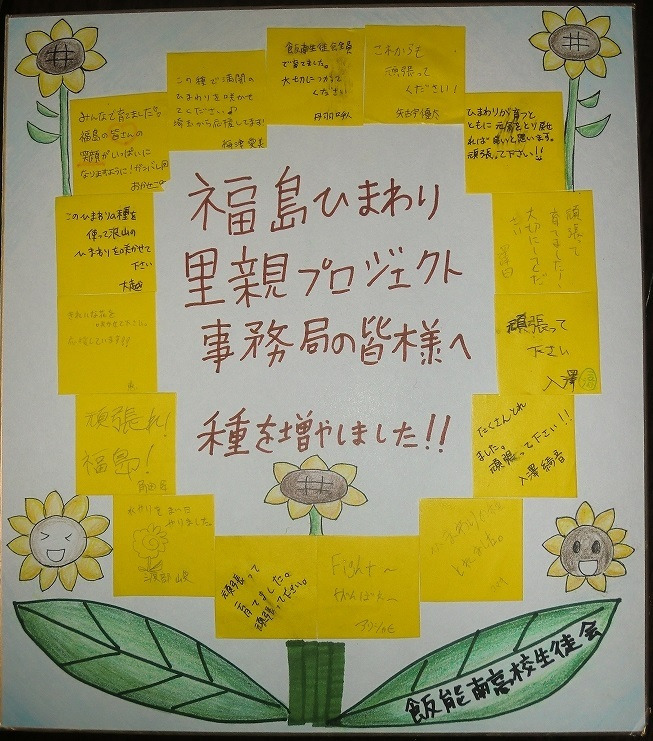 福島ひまわり
里親プロジェクト
事務局の皆様へ
種を増やしました!!
飯能南生徒会全員
で育てました。
大切につかって
ください
これからも
頑張って
ください!
この種で満開の
ひまわりを咲かせ
てください♪
埼玉から応援してます!
みんなで育てました
福島の皆さんの
笑顔がいっぱいに
なりますように!ガンバレ
ひまわりが育つと
ともに元気をとり戻せ
れば良いと思います。
頑張って下さい!!
このひまわりの種を
使って沢山の
ひまわりを咲かせて
下さい
大越
頑張って
育てました、
大切にしてくだ
さい
きれいな花を
応援しています
頑張って
下さい
入澤
頑張れ!
福島!
たくさんとれ
ました。
頑張って下さい!!
入澤綺音
水やりをまい日
やりました。
頑張って
育てました。
頑張って下さい。
Fight~
がんばれ~
とれました。
飯能南高校生徒会